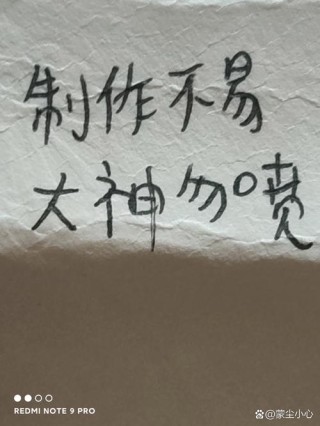 制作不易
大神勿喷
REDMI NOTE 9 PRO
蒙尘小心